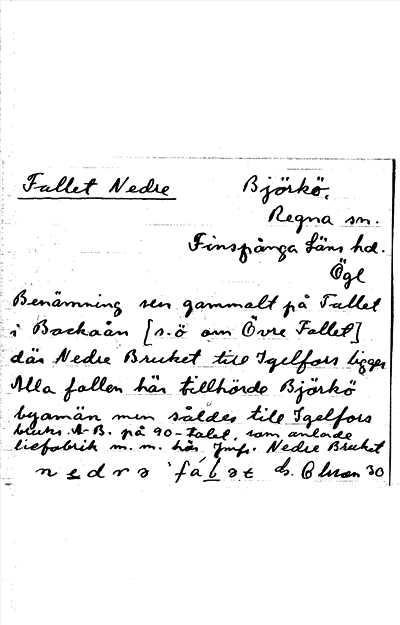 Fallet Nedre
Björkö,
Regna sn.
Finspånga Läns hd.
Ögl
Benämning sen gammalt på Fallet
i Backaån [s.ö om Övre Fallet]
där Nedre Bruket till Igelfors ligger
Alla fallen här tillhörde Björkö
byamän men såldes till Igelfors
bruks A-B. på 90-talet, som anlade
liefabrik m. m. här. Jmf. Nedre Bruket
nedrə ˈfálət
30